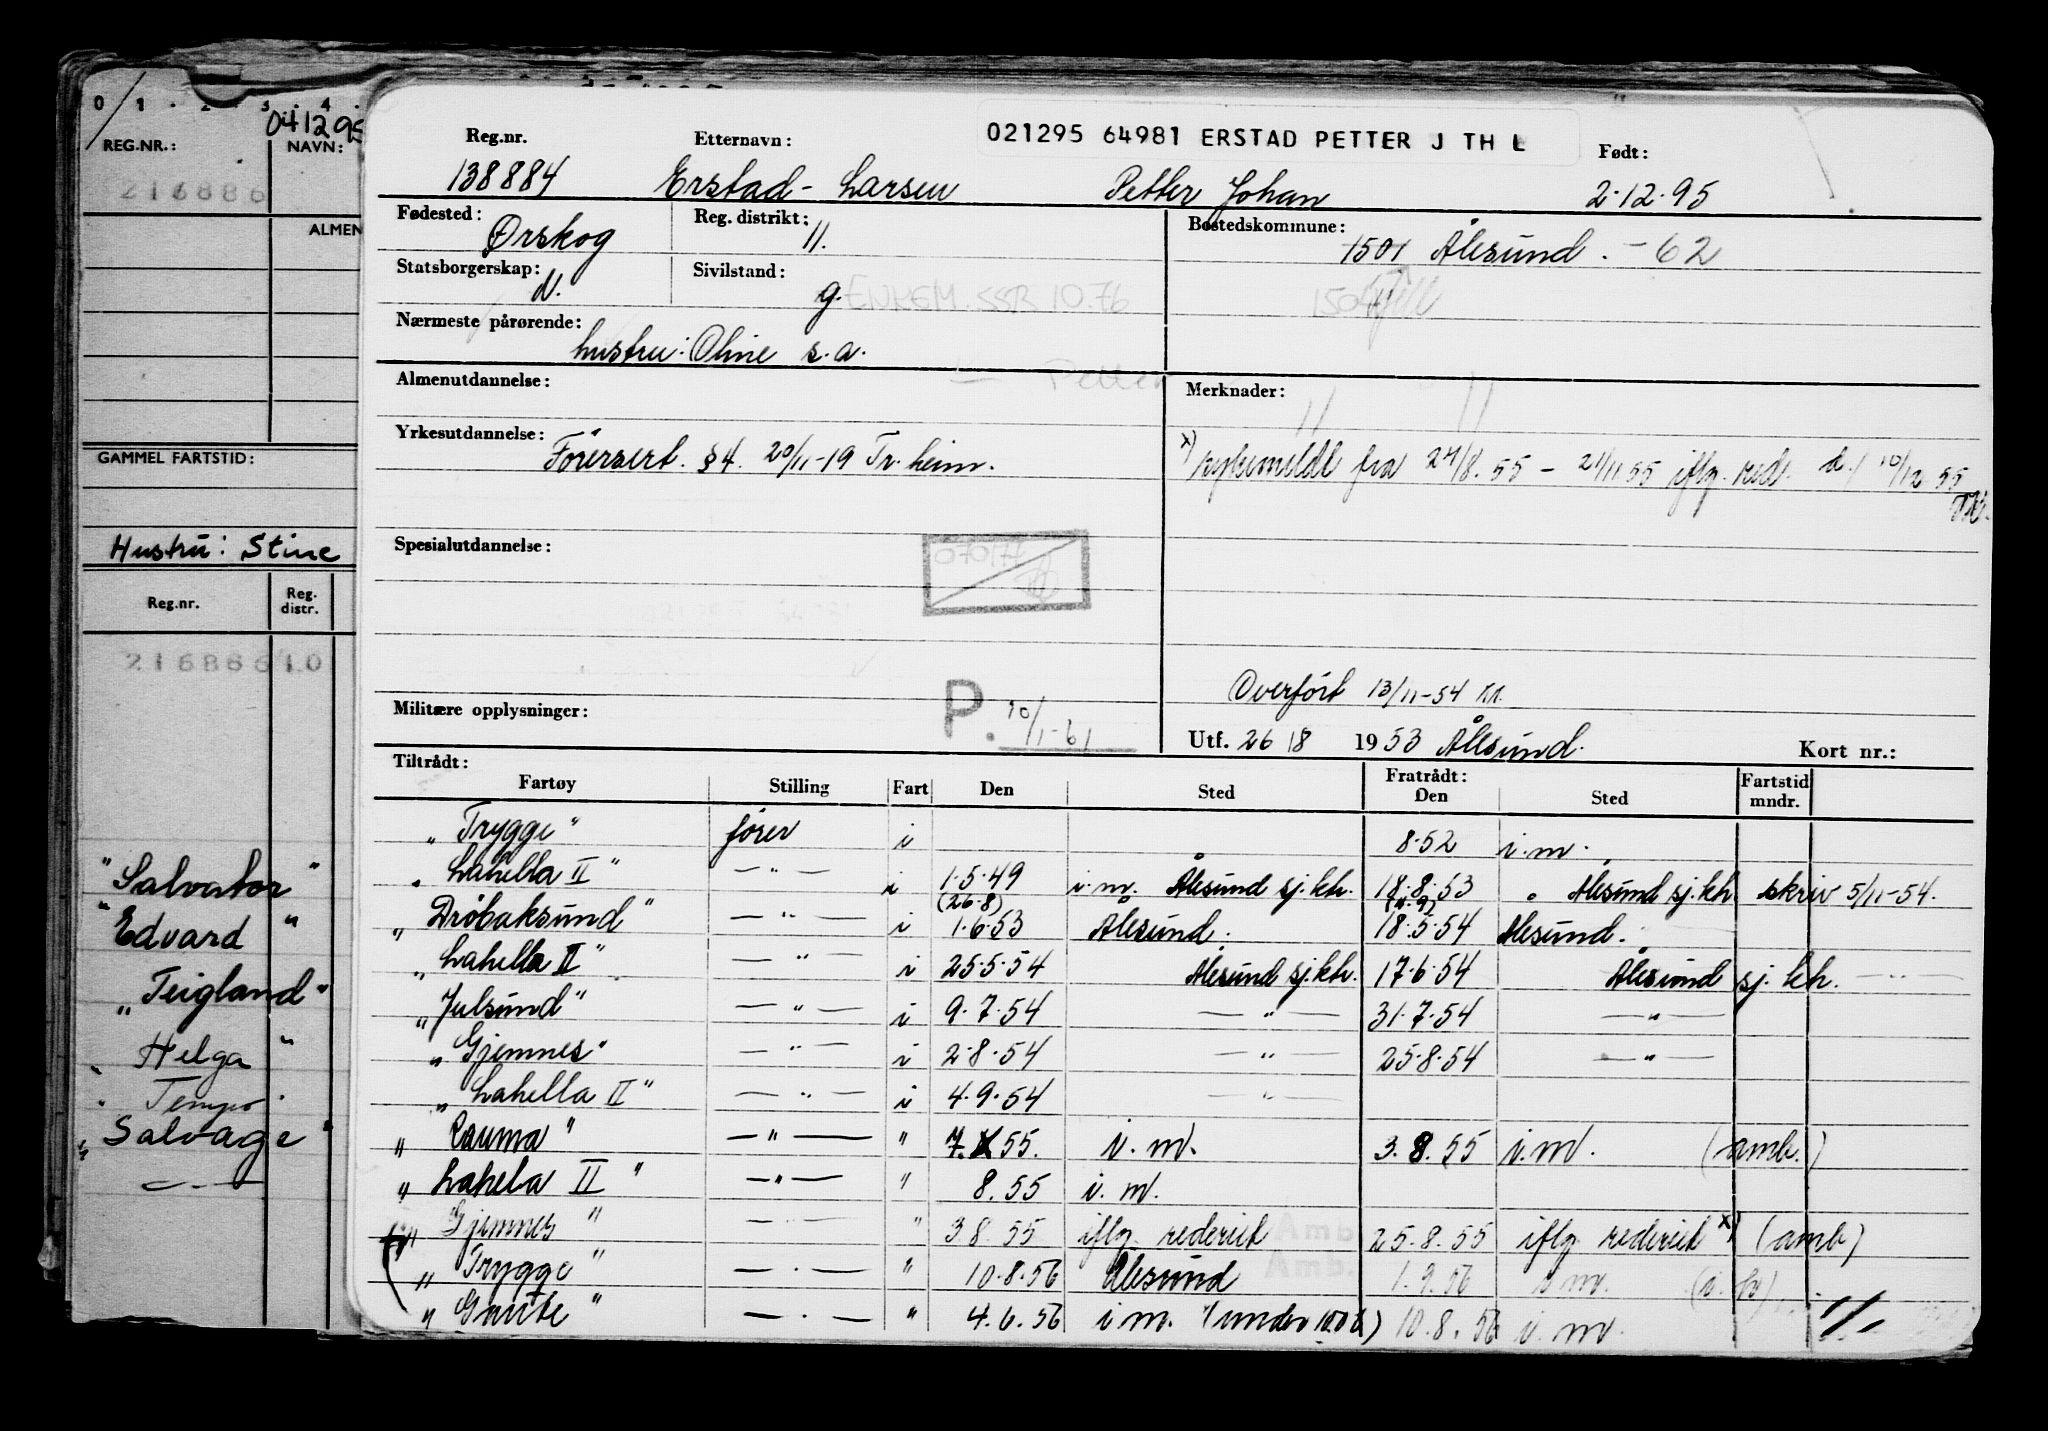 0 1 . 2 . 3 . 4 .
041295
REG.NR.: NAVN:
216886
ALMEN
GAMMEL FARTSTID:
Hustru: Stine
Reg.nr. Reg. distr.
216886 10
"Salvator"
"Edvard"
"Teigland"
"Helga"
"Tempo"
"Salvage"
— " —
021295 64981 ERSTAD PETTER J TH L
Reg.nr. Etternavn: Født:
138884 Erstad-Larsen Petter Johan 2.12.95
Fødested: Ørskog Reg. distrikt: 11. Bostedskommune: 1501 Ålesund. -62
Statsborgerskap: N. Sivilstand: g. ENKEM. SSB 10.76 1504
Nærmeste pårørende: hustru: Oline s.a.
Almenutdannelse: Petter Merknader:
Yrkesutdannelse: Førersert. §4. 20/11-19 Tr.heim.
x) sykemeldt fra 24/8.55 - 21/11 55 iflg. red. d. 10/12 55
Spesialutdannelse:
Overført 13/11-54
Militære opplysninger: P. 10/1-61 Utf. 26/8 1953 Ålesund. Kort nr.:
Tiltrådt: Fratrådt:
Fartøy Stilling Fart Den Sted Den Sted Fartstid mndr.
"Trygge" fører i 8.52 i.m.
"Lahella II" — " — i 1.5.49 i.m. Ålesund sj.kh. 18.8.53 " Ålesund sj.kh skriv 5/11-54.
(26.8)
"Drøbaksund" — " — i 1.6.53 Ålesund. 18.5.54 Ålesund.
"Lahella II" — " — i 25.5.54 Ålesund sj.kh. 17.6.54 Ålesund sj. kh. — " —
"Julsund" — " — i 9.7.54 — " — 31.7.54 — " —
"Gjemnes" — " — i 2.8.54 — " — 25.8.54 — " —
"Lahella II" — " — i 4.9.54 — " —
"Rauma" — " — " 7. 55. i.m. 3.8.55 i.m. (amb.)
"Lahela II" — " — " 8.55 i.m.
"Gjemnes" — " — " 3 8.55 iflg. rederiet Amb 25.8.55 iflg. rederiet x) (amb)
"Trygge" — " — " 10.8.56 Ålesund Amb. 1.9.56 i m.
"Gaute" — " — " 4.6.56 i m. (under 100 t) 10.8.56 i. m.